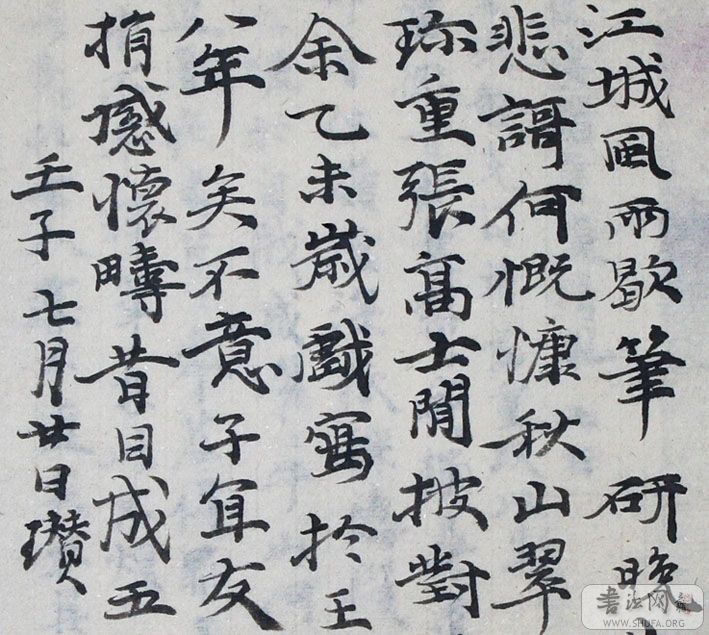 江城風雨歇筆研晚
悲謌何慨慷秋山翠
珎重張高士閒披對
余乙未歲戲寫於王
八年矣不意子宜友
捐感懷疇昔因成五
壬子七月廿日瓚
書法网
WWW.SHUFA.ORG